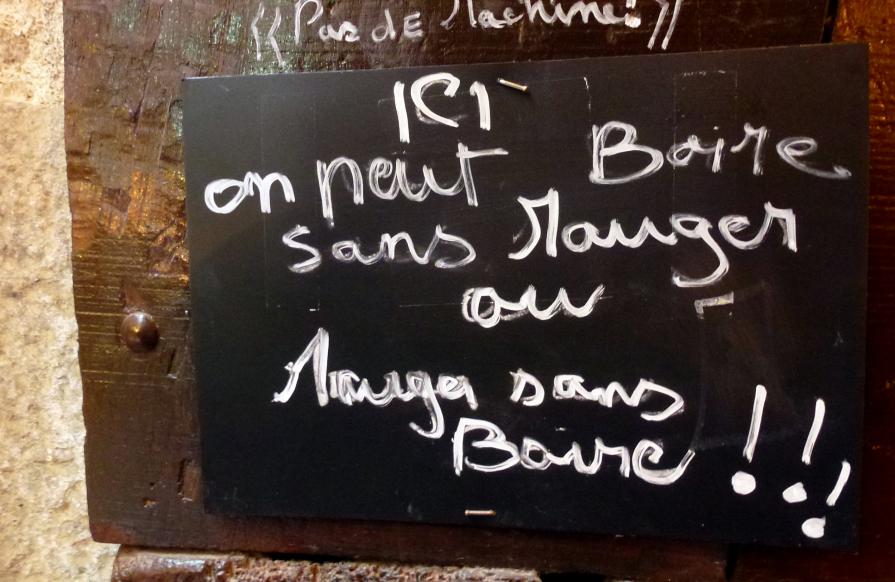 «Pas de Machine!»
ICI
on peut Boire
sans Manger
ou
Manger sans
Boire !!!